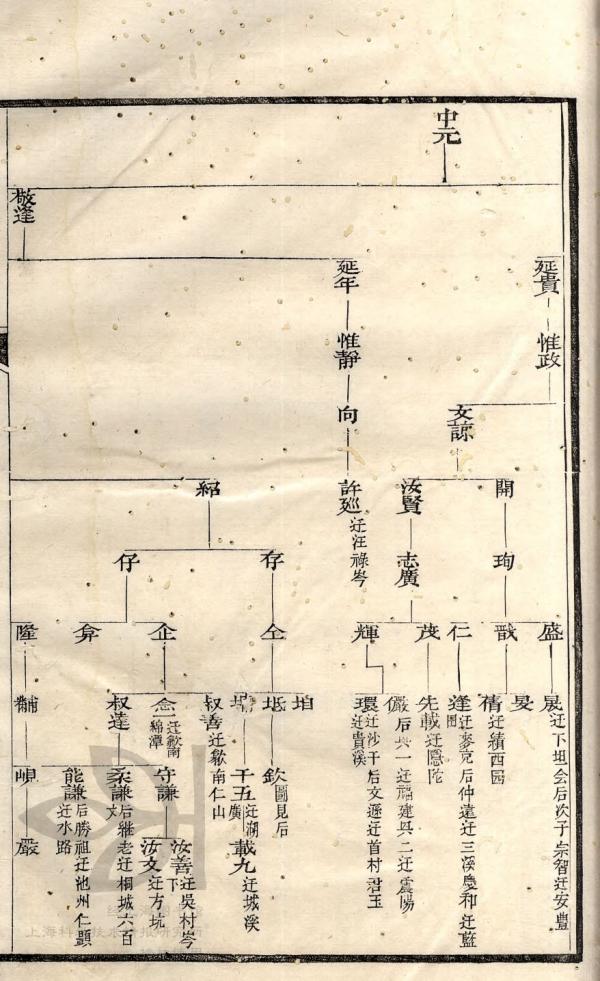 中元
敬逢
延貴
延年
惟政
惟靜
文諒
向
開
汝賢
許廵 迁汪祿岑
紹
珣
志廣
存
仔
盛
戩
仁
茂
輝
仝
企
弇
隆
晟 迁下坦会后次子崇智迁安豊
旻
倩 迁績西园
逢 迁麥克后仲遠迁三溪慶和迁藍
先載 迁隱陀
儼 后共一迁福建具二迁震陽
環 迁沙干后文遜迁首村君玉
迁貴溪
坦
坻
叔善 迁歙南仁山
念一 迁歙南綿潭
叔達
黼
欽 圖見后
千五 迁湖廣
載九 迁城溪
守謙
柔謙 后雅老迁桐城六百丈
能謙 后勝祖迁池州仁顕
迁水路
峴
汝善 迁吳村岑下
汝文 迁方坑
嚴